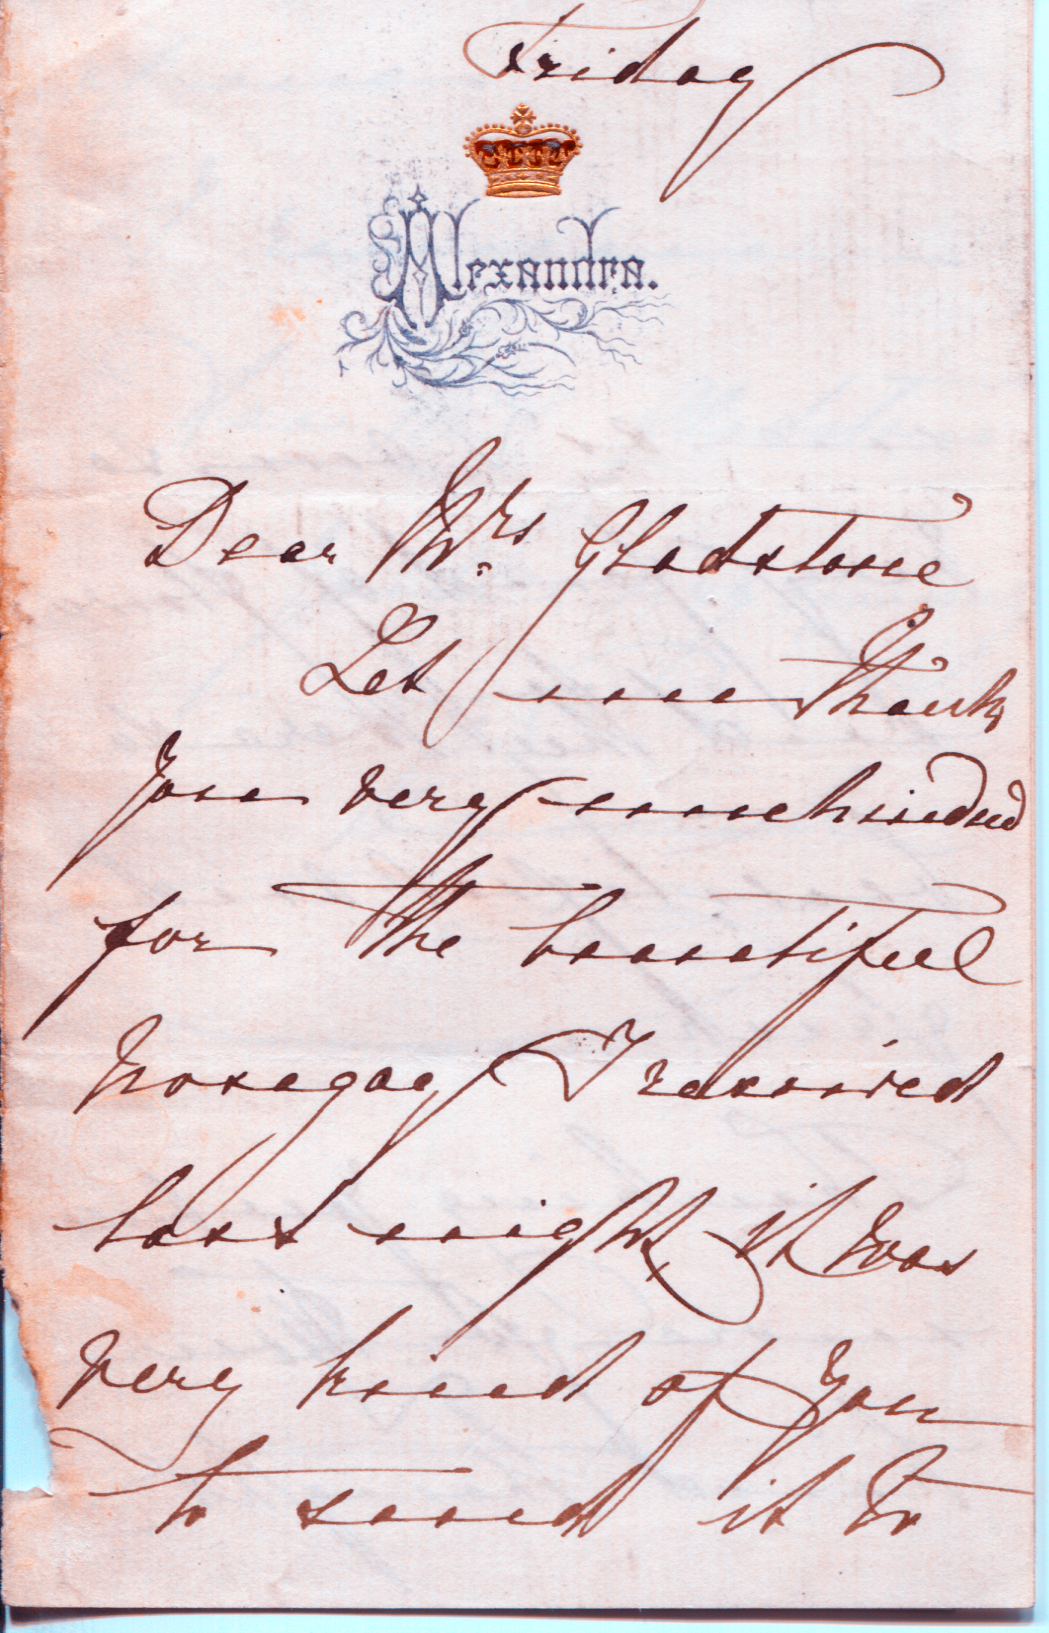 Friday
Alexandra.
Dear Mrs. Gladstone
Let me thank
you very much indeed
for the beautiful
Nosegay I received
last night, it was
very kind of you
to send it to